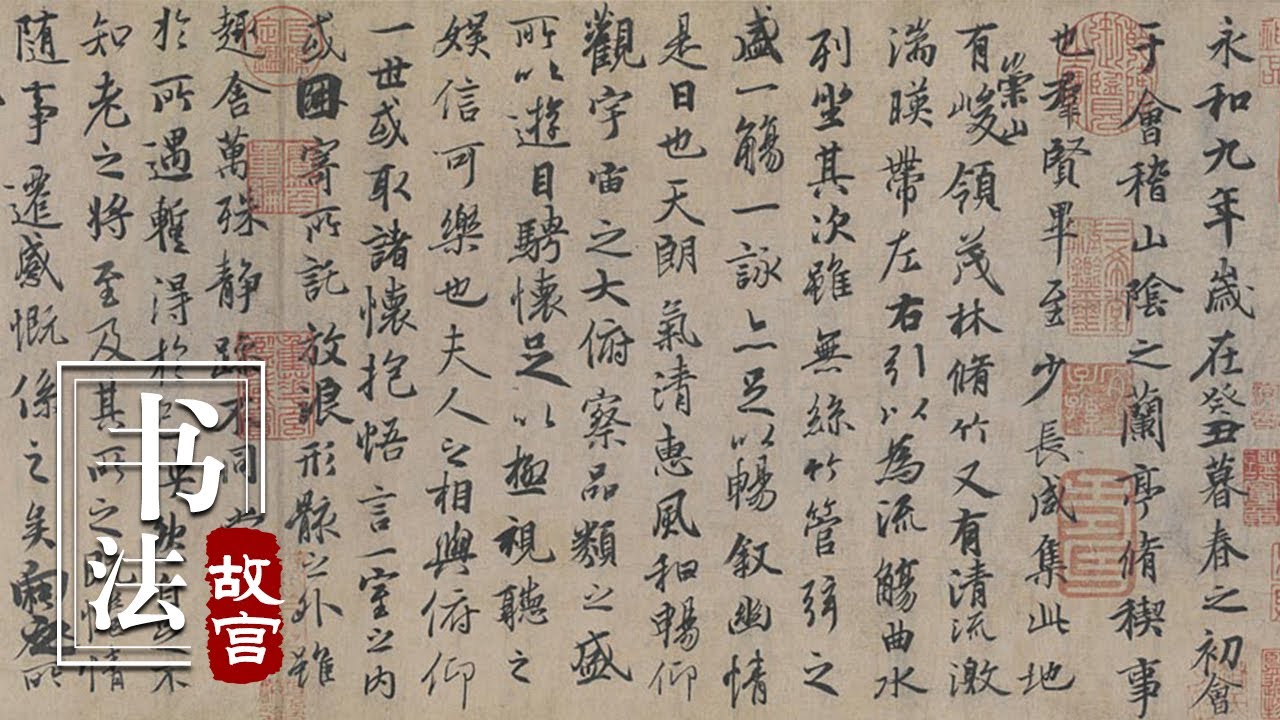 永和九年歲在癸丑暮春之初會
于會稽山陰之蘭亭脩稧事
也群賢畢至少長咸集此地
有崇山峻領茂林脩竹又有清流激
湍暎帶左右引以為流觴曲水
列坐其次雖無絲竹管弦之
盛一觴一詠亦足以暢敘幽情
是日也天朗氣清惠風和暢仰
觀宇宙之大俯察品類之盛
所以遊目騁懷足以極視聽之
娛信可樂也夫人之相與俯仰
一世或取諸懷抱悟言一室之內
或因寄所託放浪形骸之外雖
趣舍萬殊靜躁不同
於所遇蹔得於不
知老之將至及其所之情
隨事遷感慨係之矣向之所
书法
故宫